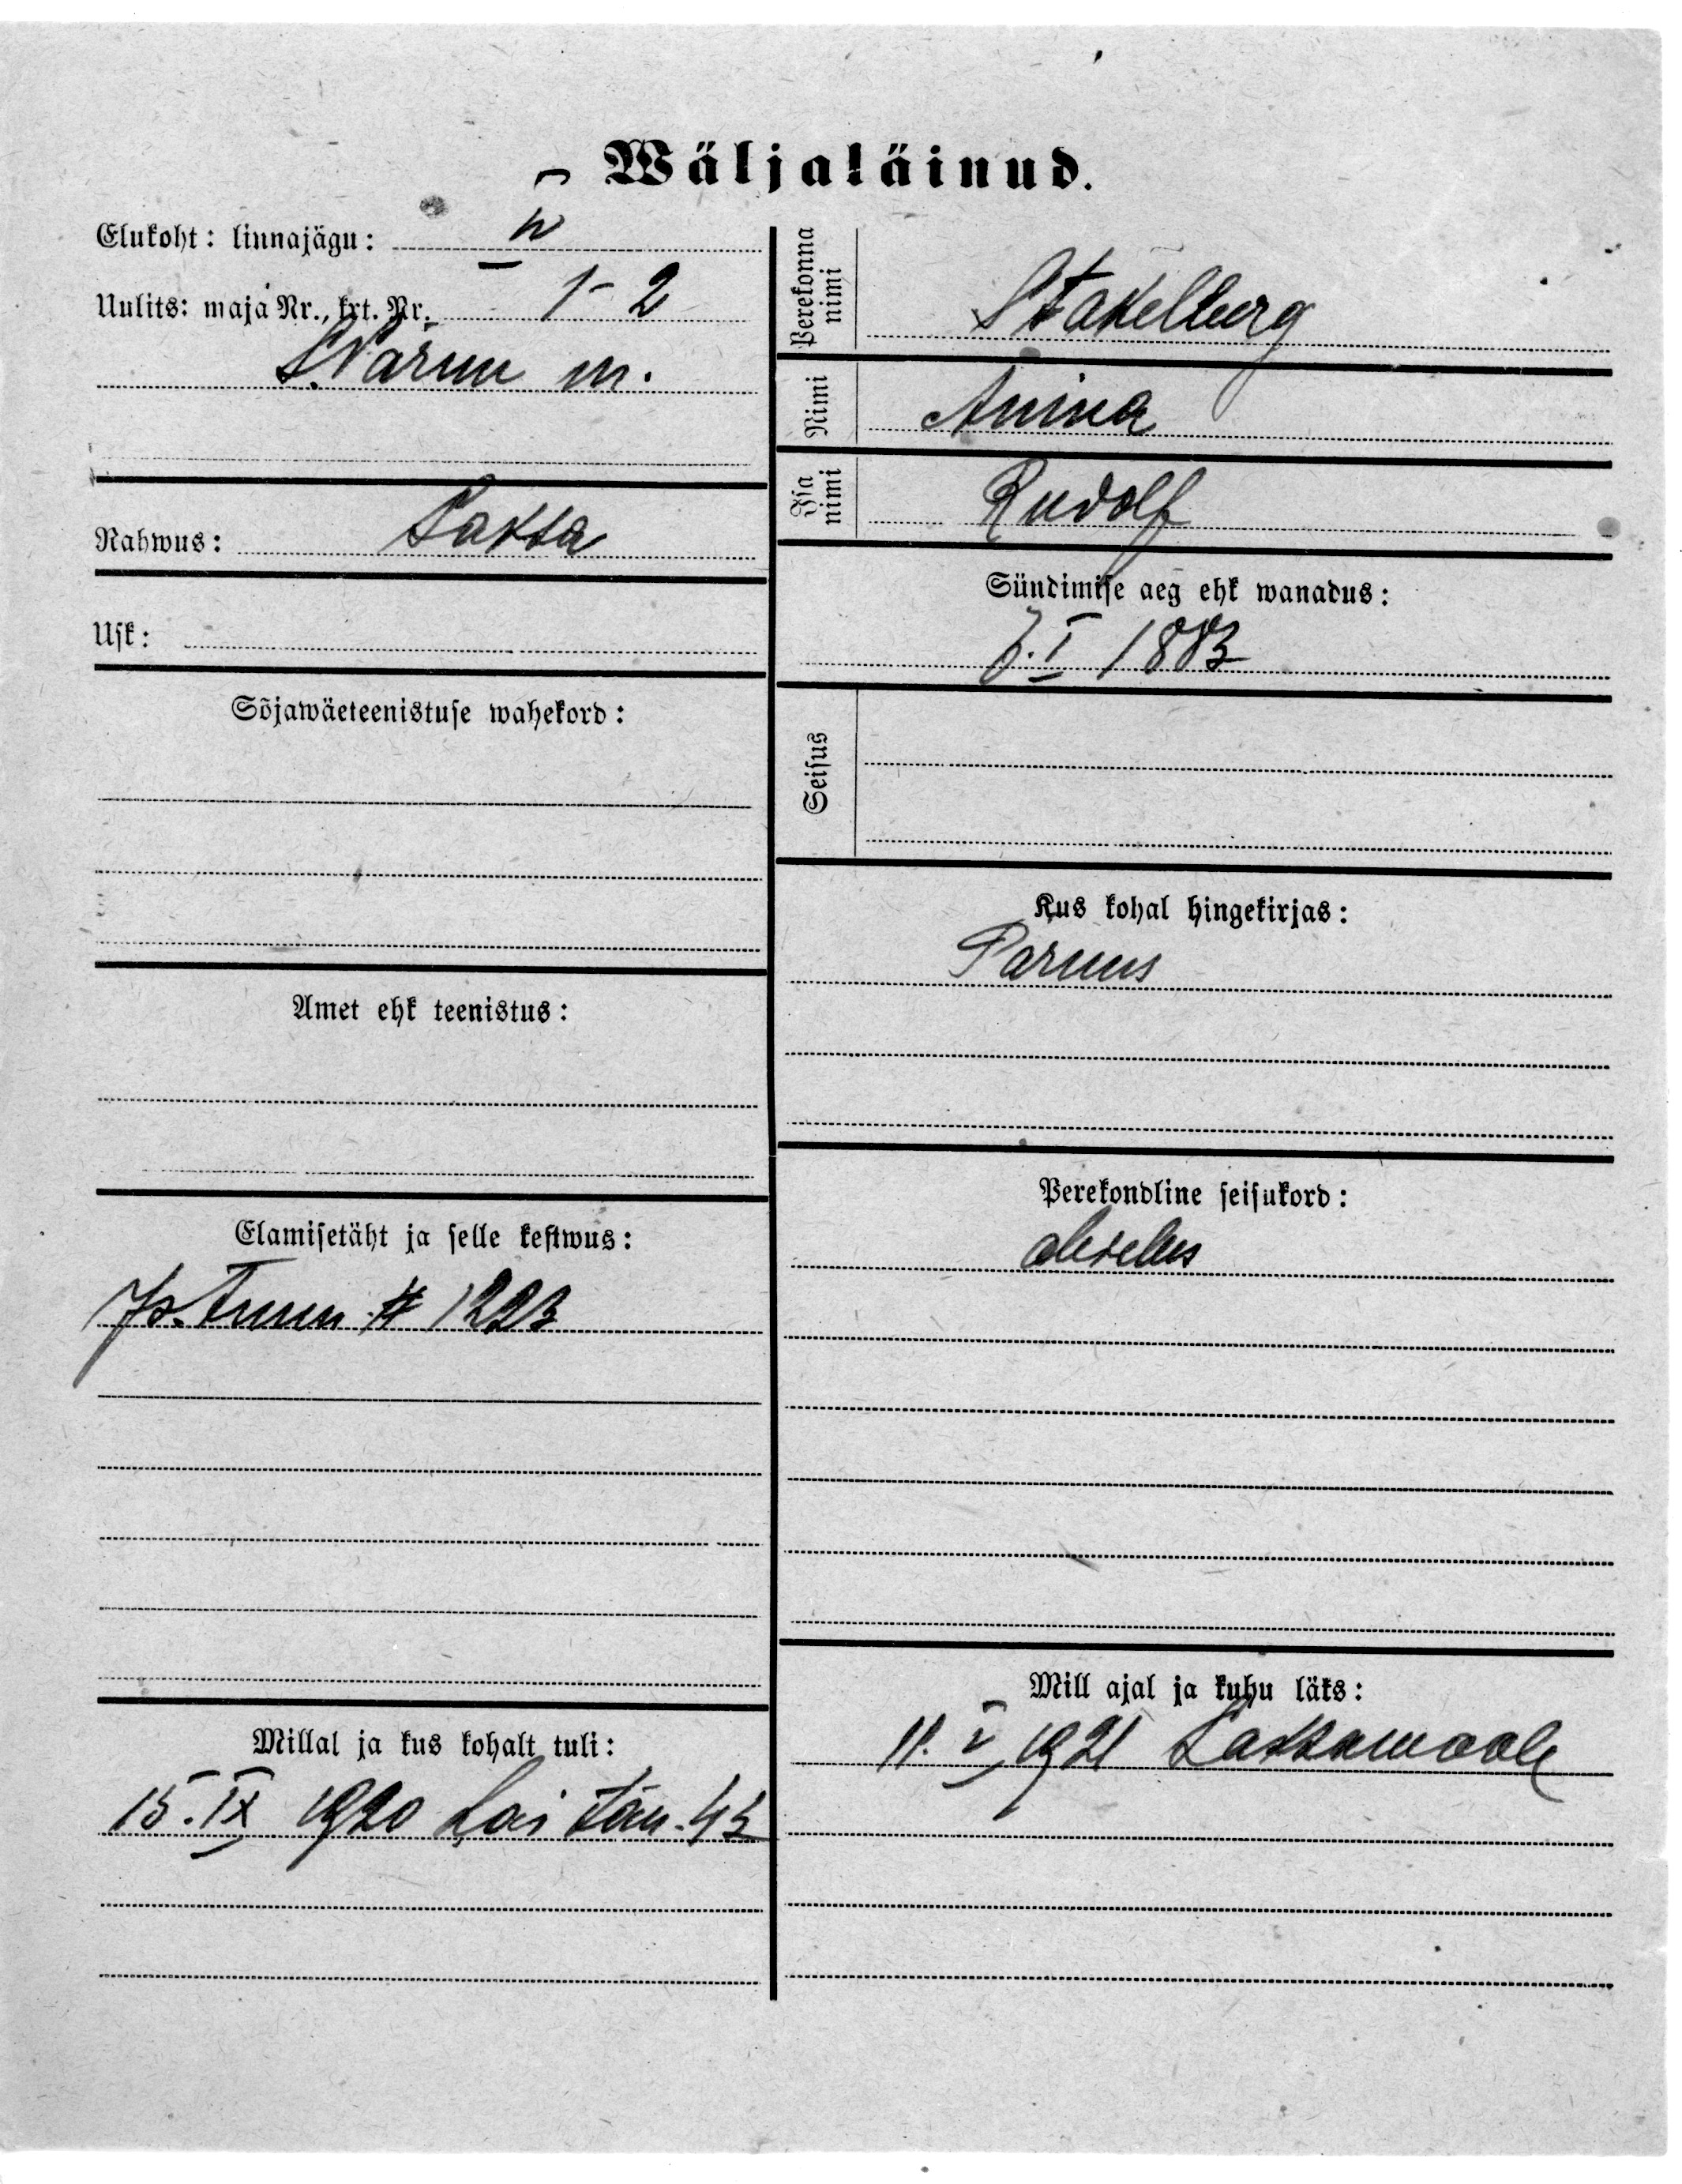 Wäljaläinud.
Elukoht: linnajägu:
Uulits: maja Nr., krt. Nr. 1-2
S. Narwa m.
Rahwus: Saksa
Usk:
Sõjawäeteenistuse wahekord:
Amet ehk teenistus:
Elamisetäht ja selle kestwus:
1223
Millal ja kus kohalt tuli:
15. IX 1920 Lai tän. 43
Perekonna nimi Stakelberg
Nimi Anina
Isa nimi Rudolf
Sündimise aeg ehk wanadus:
7. I 1883
Seisus
Kus kohal hingekirjas:
Parnus
Perekondline seisukord:
Mill ajal ja kuhu läks:
11. V 1921 Saksamaale